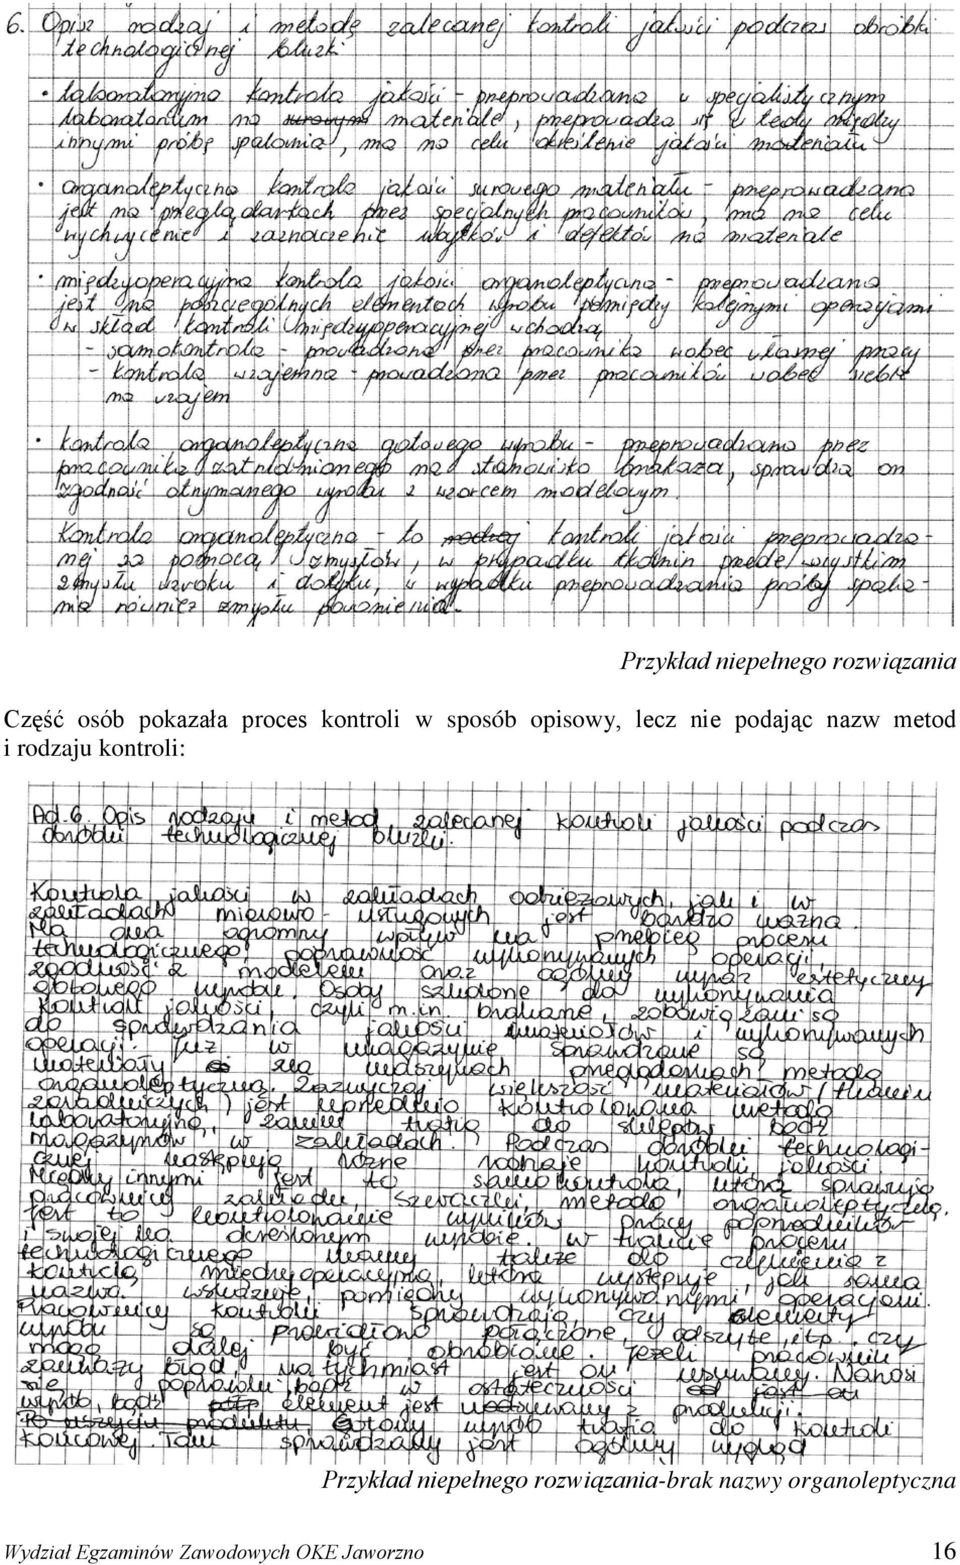 6. Opisz rodzaj i metodę zalecanej kontroli jakości podczas obróbki
technologicznej bluzki
• laboratoryjna kontrola jakości - przeprowadzana w specjalistycznym
laboratorium na surowym materiale, przeprowadza się wtedy między
innymi próbę spalania, ma na celu określenie jakości materiału
• organoleptyczna kontrola jakości surowego materiału - przeprowadzana
jest na przeglądarkach przez specjalnych pracowników, ma na celu
wychwycenie i zaznaczenie wszystkich defektów na materiale
• międzyoperacyjna kontrola jakości organoleptyczna - przeprowadzana
jest na poszczególnych elementach wyrobu pomiędzy kolejnymi operacjami
w skład kontroli międzyoperacyjnej wchodzą
- samokontrola - prowadzona przez pracownika wobec własnej pracy
- kontrola wzajemna - prowadzona przez pracowników wobec siebie
na wzajem
• kontrola organoleptyczna gotowego wyrobu - przeprowadzana przez
pracownika zatrudnionego na stanowisko brakarza, sprawdza on
zgodność otrzymanego wyrobu z wzorcem modelowym.
Kontrola organoleptyczna - to rodzaj kontroli jakości przeprowadza-
nej za pomocą zmysłów, w przypadku tkanin przede wszystkim
zmysłu wzroku i dotyku, w wypadku przeprowadzania próby spala-
nia również zmysłu powonienia.
Przykład niepełnego rozwiązania
Część osób pokazała proces kontroli w sposób opisowy, lecz nie podając nazw metod
i rodzaju kontroli:
Ad.6. Opis rodzaju i metod zalecanej kontroli jakości podczas
obróbki technologicznej bluzki.
Kontrola jakości w zakładach odzieżowych, jak i w
zakładach miarowo - usługowych jest bardzo ważna.
Ma ona ogromny wpływ na przebieg procesu
technologicznego, poprawność wykonywanych operacji,
zgodność z modelem oraz ogólny wyraz estetyczny
gotowego wyrobu. Osoby szkolone do wykonywania
kontroli jakości, czyli m.in. brakarze, zobowiązani są
do sprawdzania jakości materiałów i wykonywanych
operacji. Już w magazynie sprawdzane są
materiały na maszynach przeglądowych metodą
organoleptyczną. Zazwyczaj większość materiałów (tkanin
zasadniczych) jest uprzednio kontrolowana metodą
laboratoryjną, zanim trafią do sklepów bądź
magazynów w zakładach. Podczas obróbki technologi-
cznej następują różne rodzaje kontroli jakości.
Między innymi jest to samokontrola, którą sprawują
pracownicy zakładu, szwaczki, metodą organoleptyczną.
Jest to kontrolowanie wyników pracy poprzedników
i swojej na określonym wyrobie. W trakcie procesu
technologicznego mamy także do czynienia z
kontrolą międzyoperacyjną, która występuje, jak sama
nazwa wskazuje, pomiędzy wykonywanymi operacjami.
Pracownicy kontroli sprawdzają, czy elementy
wyrobu są prawidłowo połączone, odszyte, itp. czy
mogą dalej być obrabiane. Jeżeli pracownik
zauważy błąd, natychmiast jest on usuwany. Nanosi
się poprawki, bądź w ostateczności
wyrób, bądź element jest usuwany z produkcji.
Po uszyciu produktu, Gotowy wyrób trafia do kontroli
końcowej. Tam sprawdzany jest ogólny wygląd
Przykład niepełnego rozwiązania-brak nazwy organoleptyczna
Wydział Egzaminów Zawodowych OKE Jaworzno 16